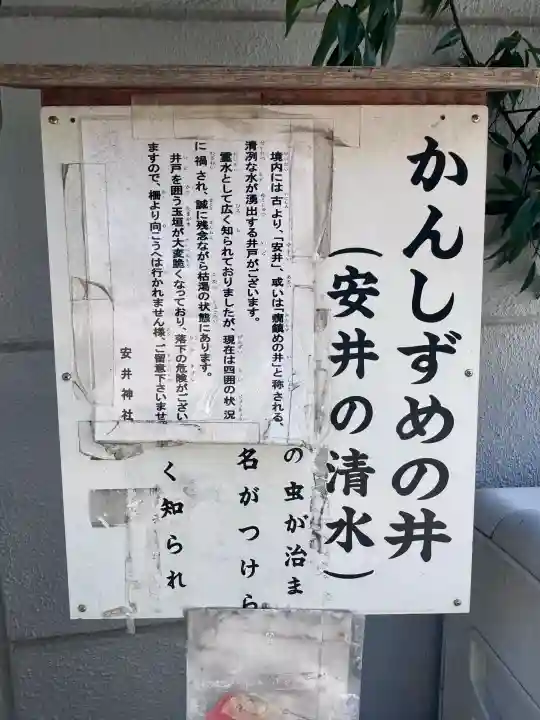 かんしずめの井
(安井の清水)
境内には古より、「安井」、或いは「癇鎮めの井」と称される、
清冽な水が湧出する井戸がございます。
霊水として広く知られておりましたが、現在は四囲の状況
に禍され、誠に残念ながら枯渇の状態にあります。
井戸を囲う玉垣が大変脆くなっており、落下の危険がござい
ますので、柵より向こうへは行かれません様、ご留意下さいませ
安井神社
の虫が治ま
名がつけら
く知られ